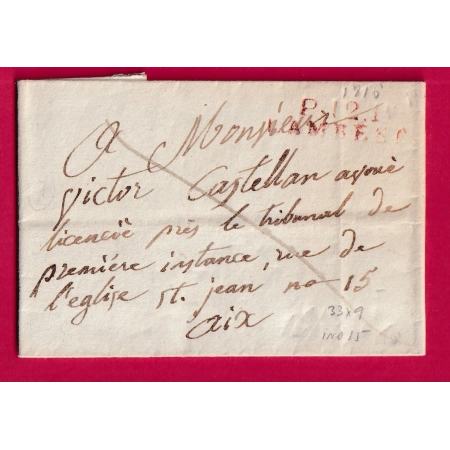 1816
P.12.P
LAMBESC
A Monsieur
victor Castellan avoué
licencié près le tribunal de
première instance, rue de
l'eglise st. jean no 15
aix
33x9
IND 15